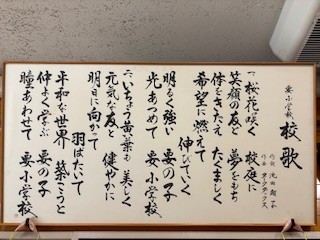 要小学校 校歌
作詞
作曲
一、桜花咲く 校庭に
笑顔の友と 夢をもち
体をきたえ たくましく
希望に燃えて
伸びていく
明るく強い 要の子
光あつめて 要小学校
二、いちょう黄葉も 美しく
元気な友と 健やかに
明日に向かって
羽ばたいて
平和な世界 築こうと
仲よく学ぶ 要の子
瞳あわせて 要小学校